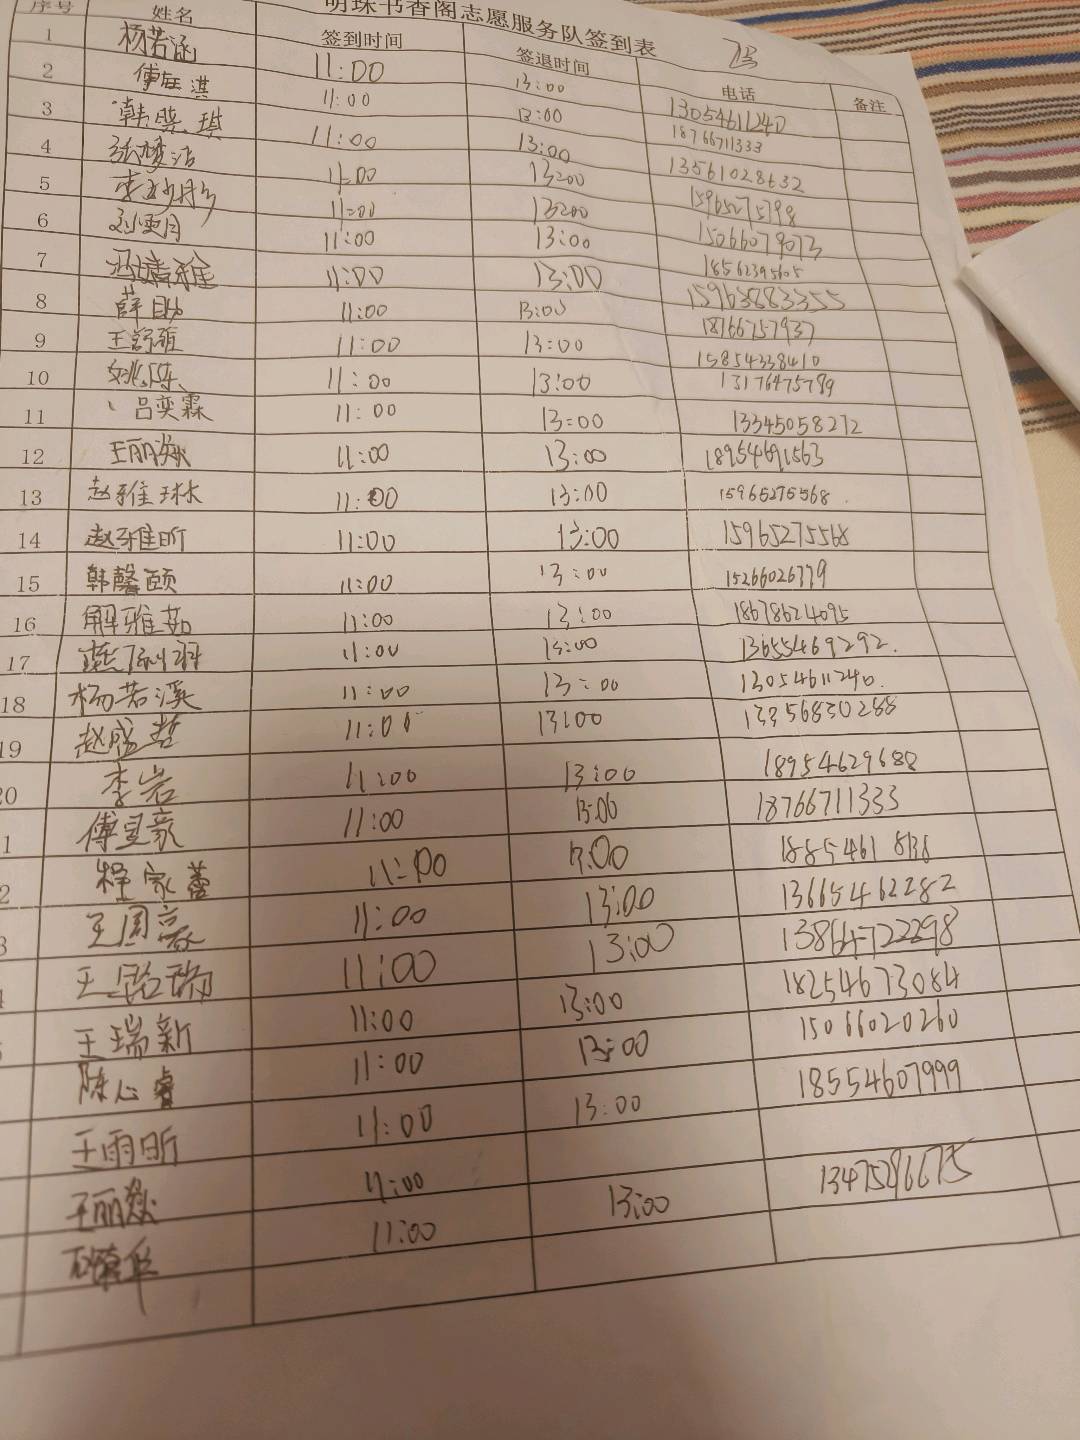 明珠书香阁志愿服务队签到表
序号 姓名 签到时间 签退时间 电话 备注
1 杨若涵 11:00 13:00 13054611240
2 傅 淇 11:00 13:00 18766711333
3 韩 琪 11:00 13:00 13561028632
4 张梦洁 11:00 13:00 15965275798
5 李 11:00 13:00 15066079073
6 刘 月 11:00 13:00 18562395605
7 冯 雅 11:00 13:00 15963883355
8 薛 11:00 13:00 18766757937
9 王舒雅 11:00 13:00 15854338410
10 姚 11:00 13:00 13176475789
11 吕奕霖 11:00 13:00 13345058272
12 王丽焱 11:00 13:00 18954691563
13 赵雅琳 11:00 13:00 15965275568
14 赵雅昕 11:00 13:00 15965275568
15 韩馨颐 11:00 13:00 15266026779
16 解雅茹 11:00 13:00 18678624095
17 11:00 13:00 13655469292
18 杨若溪 11:00 13:00 13054611240
19 赵盛哲 11:00 13:00 13356830288
20 李岩 11:00 13:00 18954629688
1 傅 豪 11:00 13:00 18766711333
2 程家蕾 11:00 13:00
3 王 11:00 13:00 13665462282
王 瑞 11:00 13:00
王瑞新 11:00 13:00 18254673084
陈心睿 11:00 13:00 15066020260
王雨昕 11:00 13:00 18554607999
王丽焱 11:00
11:00 13:00